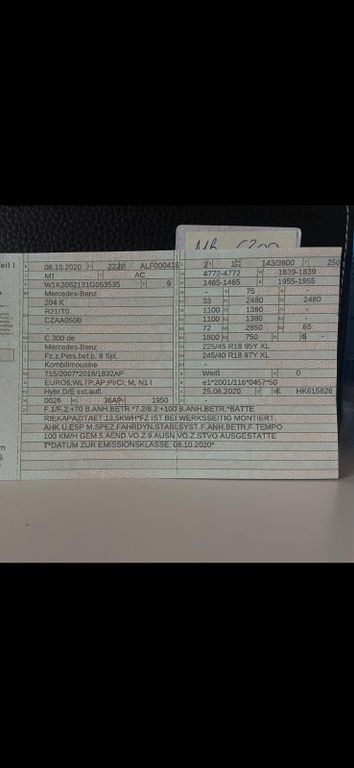 MB C300
Teil I
08.10.2020 2222 ALF000416
M1 AC
W1K2052131G053535 9
Mercedes-Benz
204 K
R21/T0
CZAA050B
-
C 300 de
Mercedes-Benz
Fz.z.Pers.bef.b. 8 Spl.
Kombilimousine
715/2007*2018/1832AP
EURO6;WLTP;AP;PI/CI; M, N1 I
Hybr.D/E ext.aufl.
0026 36AP 1950
2 143/3800 250
4772-4772 1839-1839
1465-1465 1955-1955
- 75 -
33 2480 2480
1100 1380 -
1100 1380 -
72 2850 65
1800 750 6 -
225/45 R18 95Y XL
245/40 R18 97Y XL
-
Weiß 0
e1*2001/116*0457*50
25.06.2020 K HK615826
-
F.1/F.2:+70 B.ANH.BETR.*7.2/8.2:+100 B.ANH.BETR.*BATTE
RIEKAPAZITAET:13,5KWH*FZ IST BEI WERKSSEITIG MONTIERT.
AHK U.ESP M.SPEZ.FAHRDYN.STABI.SYST.F.ANH.BETR.F.TEMPO
100 KM/H GEM.5.AEND.VO.Z.9 AUSN.VO.Z.STVO AUSGESTATTE
T*DATUM ZUR EMISSIONSKLASSE: 08.10.2020*